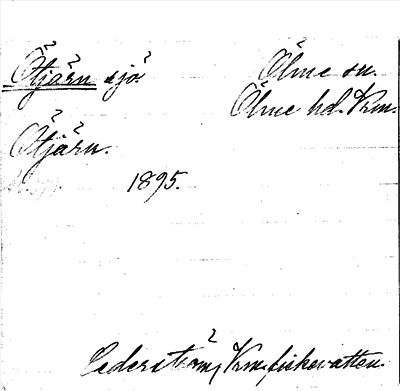 Ötjärn sjö.
Ölme sn.
Ölme hd. Vrm.
Ötjärn.
1895.
Cederström, Vrm, fiskevatten.